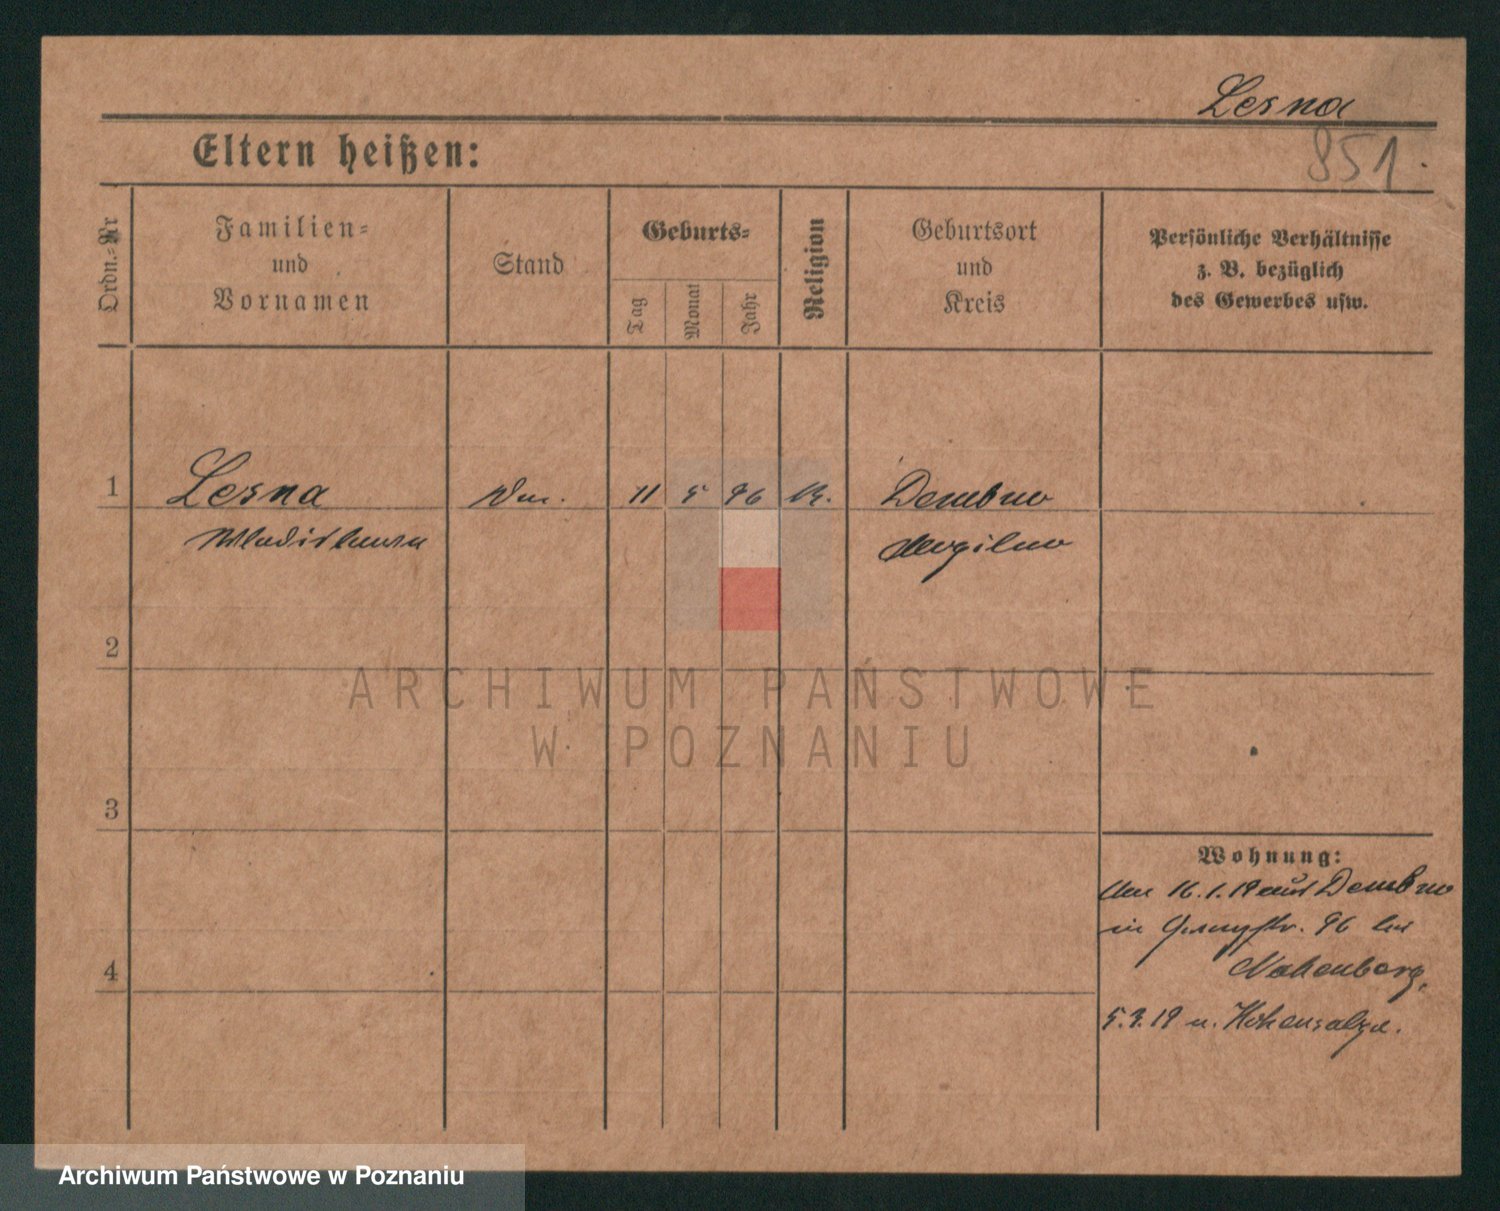 Lesna
851.
Eltern heißen:
Ordn.-Nr
Familien-
und
Vornamen
Stand
Geburts-
Tag
Monat
Jahr
Religion
Geburtsort
und
Kreis
Persönliche Verhältnisse
z. B. bezüglich
des Gewerbes usw.
1
Lesna
11
5
96
Dembno
Wladislawa
Mogilno
2
ARCHIWUM PAŃSTWOWE
W POZNANIU
3
Wohnung:
16.1.19 aus Dembno
in 96 bei
4
5.3.19 n. Hohensalza.
Archiwum Państwowe w Poznaniu